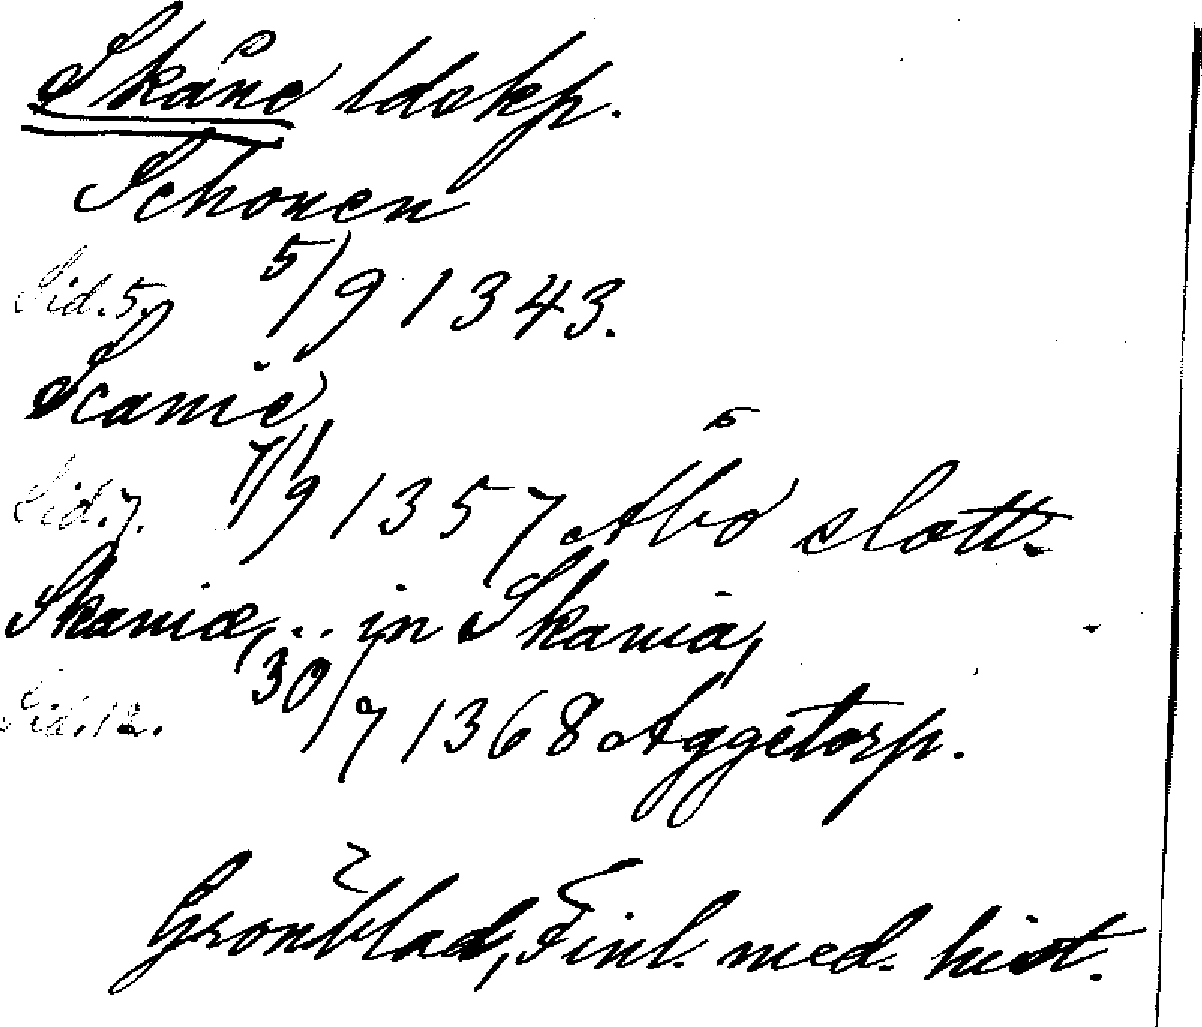 Skåne ldskp.
Schonen
Sid. 5. 5/9 1343.
Scanie,
Sid. 7. 7/9 1357 Åbo slott.
Skaniæ, ... in Skania,
Sid. 12. 30/7 1368 Aggetorp.
Grönblad, Finl. med. hist.